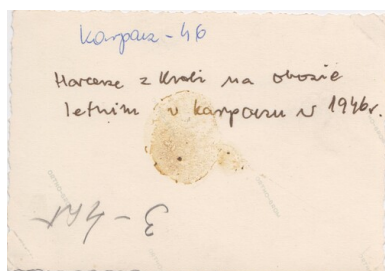 Karpacz - 46
Harcerze z Kroli na obozie
letnim w Karpaczu w 1946r.